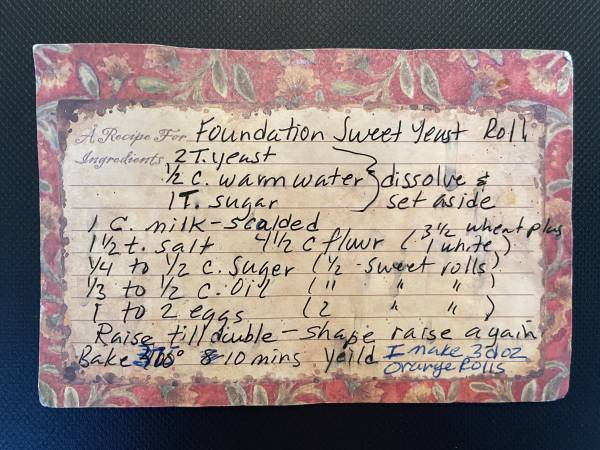 A Recipe For Foundation Sweet Yeast Roll
Ingredients 2 T. yeast
1/2 c. warm water } dissolve &
1 T. sugar set aside
1 C. milk - scalded
1 1/2 t. salt 4 1/2 c flour ( 3 1/2 wheat plus 1 white )
1/4 to 1/2 c. suger ( 1/2 - sweet rolls )
1/3 to 1/2 c. Oil ( " " " )
1 to 2 eggs ( 2 " " )
Raise till double - shape raise again
Bake ° 8-10 mins yeild I make 3 doz
Orange Rolls